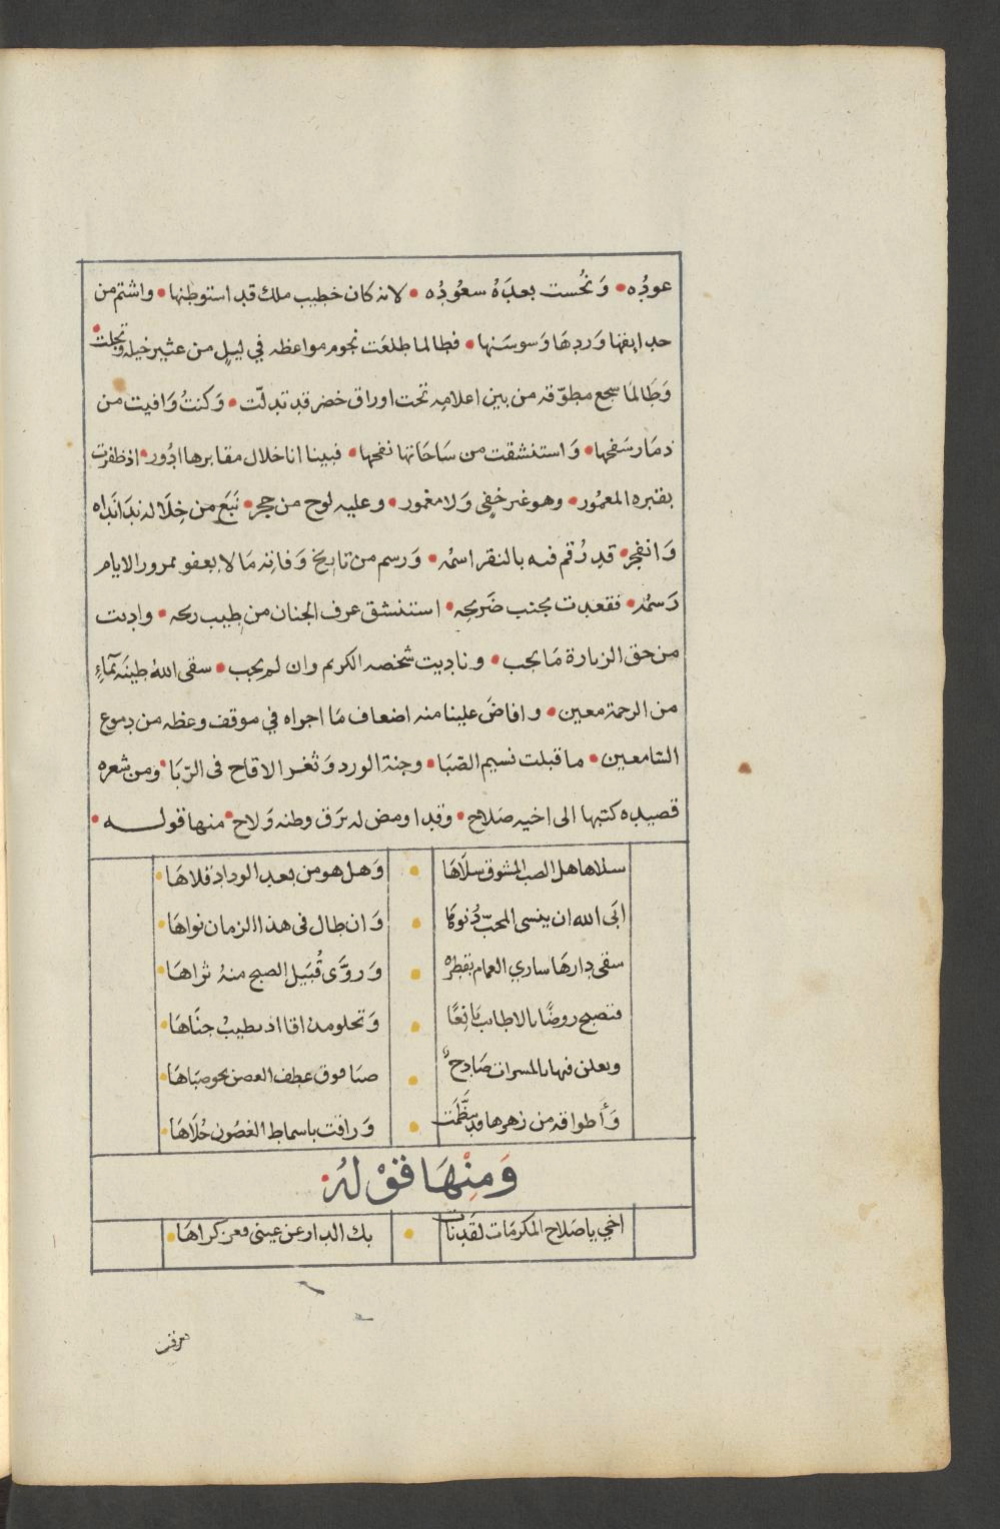 عوده • وَنُحست بعدَهُ سعُودُه • لانه كان خطيب ملك قد استوطنها • واشتم من
حدايقها وَردهَا وَسوسَنها • فطالما طلعَت نجوم مواعظه في ليلٍ من عثير خيله وتجلت •
وَطَالمَا سجع مطوّقه من بين اعلامه تحت اوراق خضر قد تدلّت • وَكنتُ وَافيت من
ذمَار سَفحها • وَاستنشقت من سَاحَاتها نفحها • فبينا انا خلال مقابرها ادُور • اذ ظفرت
بقبره المعمُور • وهو غير خفي وَلا مغمور • وعليه لوح من حجر • نَبَع من خِلَاله نَدَا نَداه
وَانفجر • قد رُقم فيه بالنقر اسمُه • وَرسم من تاريخ وَفاته مَا لا يعفو بمرور الايام
رَسمُه • فقعدت بجنب ضَريحه • استنشق عرف الجنان من طيب ريحه • واديت
من حق الزيارة مَا يجب • وناديت شخصه الكريم وان لم يجب • سقى الله طينَه بمآءٍ
من الرحمة معين • وافاضَ علينا منه اضعاف مَا اجراه في موقف وعظه من دموع
السّامعين • ما قبلت نسيم الصّبَا • وجنة الورد وَثغر الاقاح فى الرّبَا • ومن شعره
قصيده كتبها الى اخيه صَلاح • وقد اومض له برَق وطنه وَلاح • منها قولــه •
سلاها هل الصب المشوق سلَاهَا • وَهل هو من بعد الوداد قلاهَا •
ابَى الله ان ينسى المحبّ دُنوهَا • وَان طال فى هذا الزمان نواهَا •
سقى دارهَا ساري الغمام بقطره • وَروَّى قُبَيل الصبح منهُ ثراهَا •
فتصبح روضًا بالاطايب يَانِعًا • وَتحلو مذاقا اذ يطيبُ جنَاهَا •
ويعلن فيها بالمسرات صَادِحٌ • صبَا فوق عطف الغصن نحو صبَاهَا •
وَأَطواقه من زهرها قد نظَّمَت • وَراقت باسماط الغصُون حُلَاهَا •
وَمِنْهَا قَوْلهُ •
اخي يا صَلاح المكرمَات لقد نات • بك الدار عن عينى فعز كراهَا •